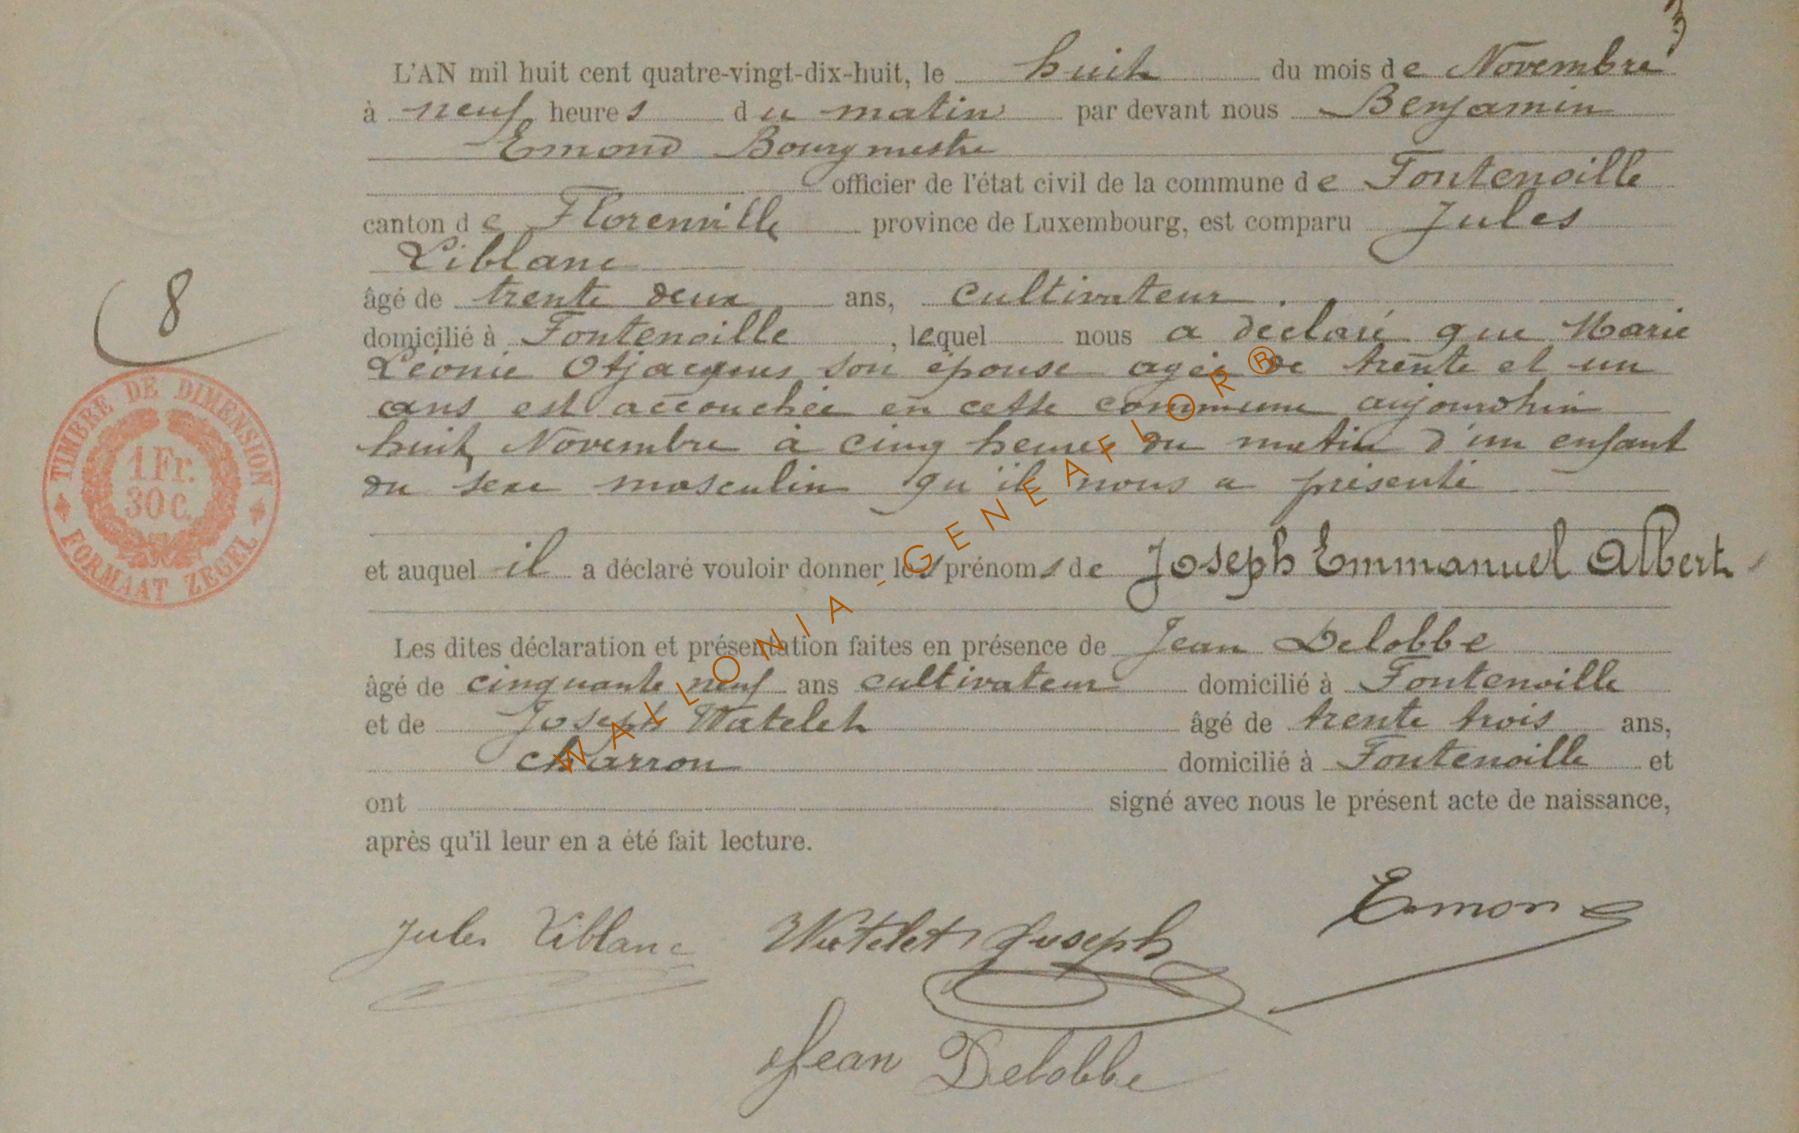 L'AN mil huit cent quatre-vingt-dix-huit, le huit du mois de Novembre
à neuf heures du matin par devant nous Benjamin
Emond Bourgmestre
officier de l'état civil de la commune de Fontenoille
canton de Florenville province de Luxembourg, est comparu Jules
Liblanc
âgé de trente deux ans, cultivateur.
domicilié à Fontenoille, lequel nous a déclaré que Marie
Léonie Otjacques son épouse agée de trente et un
ans est accouchée en cette commune aujourdhui
huit Novembre à cinq heures du matin d'un enfant
du sexe masculin qu'il nous a présenté
et auquel il a déclaré vouloir donner les prénoms de Joseph Emmanuel Albert
Les dites déclaration et présentation faites en présence de Jean Delobbe
âgé de cinquante neuf ans cultivateur domicilié à Fontenoille
et de Joseph Watelet âgé de trente trois ans,
charron domicilié à Fontenoille et
ont signé avec nous le présent acte de naissance,
après qu'il leur en a été fait lecture.
8
TIMBRE DE DIMENSION
1 Fr.
30 c.
FORMAAT ZEGEL
WALLONIA - GENEAFLOR ®
Jules Liblanc Watelet Joseph Emond
Jean Delobbe